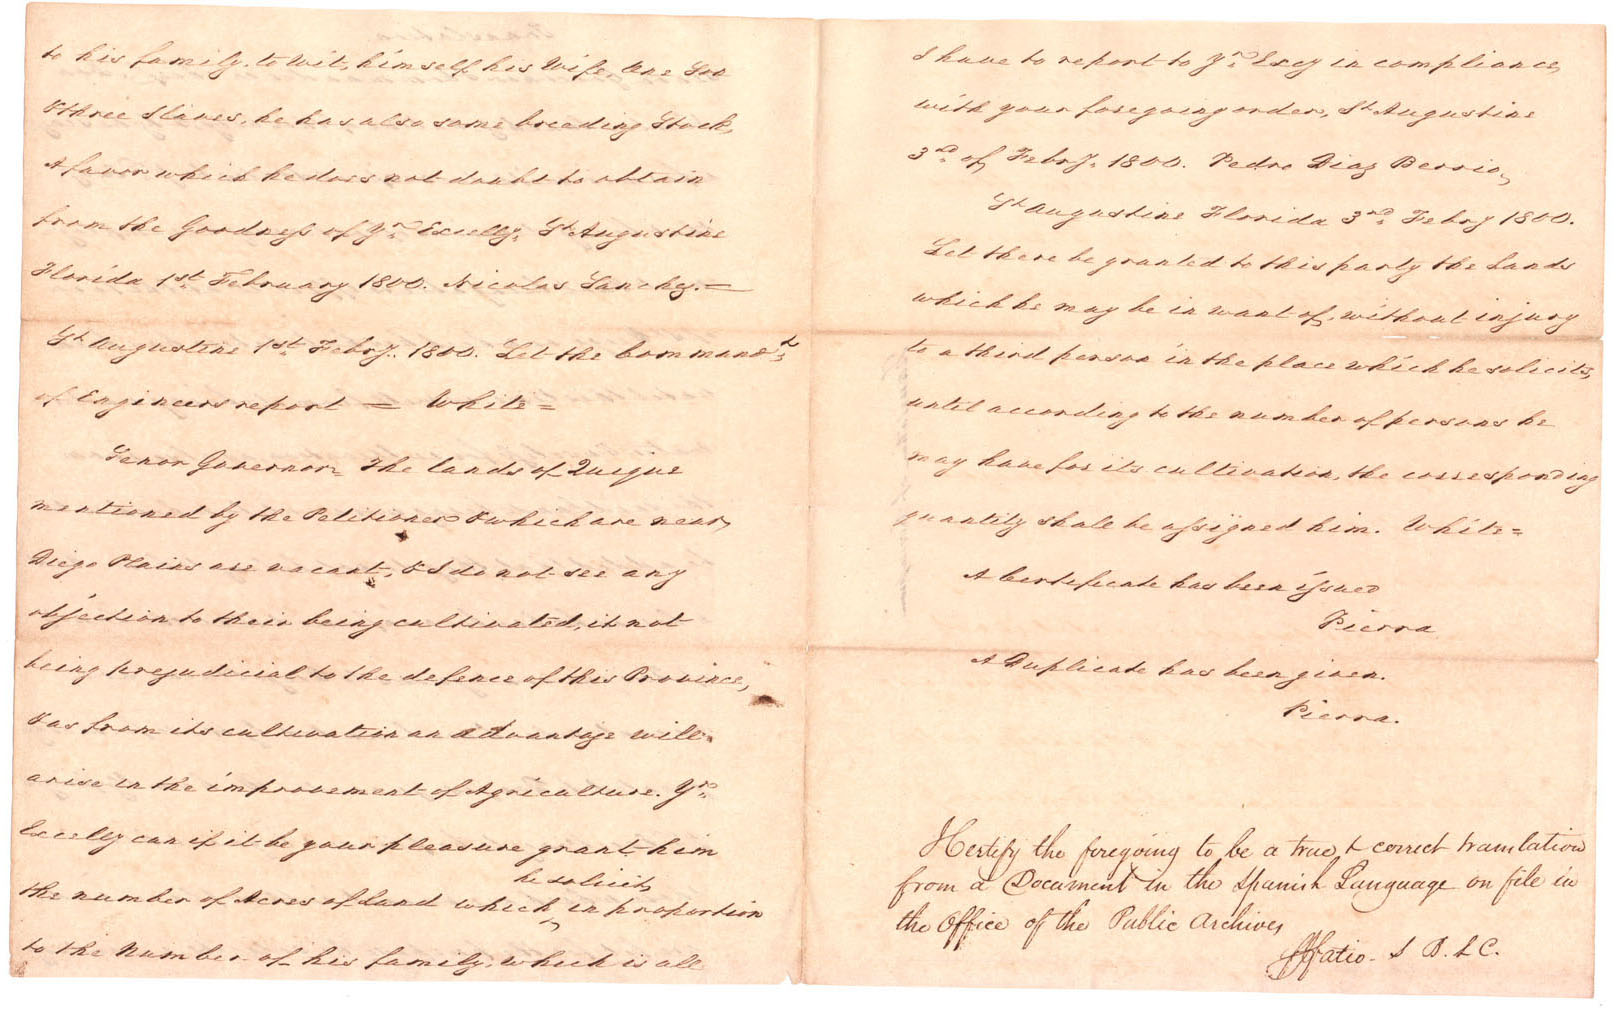 to his family. to wit, himself his Wife, One Son
& three Slaves, he has also some breeding Stock,
A favor which he does not doubt to obtain
from the Goodness of Yr. Excelly. St Augustine
Florida 1st February 1800. Nicolas Sanchez. —
St Augustine 1st Febry. 1800. Let the Commandt.
of Engineers report — White =
Senor Governor = The lands of Quique
mentioned by the Petitioner & which are near
Diego Plains are vacant, & I do not see any
objection to their being cultivated, it not
being prejudicial to the defence of this Province,
& as from its cultivation an advantage will
arise in the improvement of Agriculture. Yr.
Excelly can if it be your pleasure grant him
the number of Acres of land which he solicits, in proportion
to the Number of his family, which is all
I have to report to Yr. Excy in compliance,
with your foregoing order, St Augustine
3rd. of Febry. 1800. Pedro Diaz Berrio,
St Augustine Florida 3rd. Febry 1800.
Let there be granted to this party the Lands
which he may be in want of, without injury
to a third person in the place which he solicits,
until according to the number of persons he
may have for its cultivation, the corresponding
quantity shall be assigned him. White =
A Certificate has been issued
Pierra
A Duplicate has been given.
Pierra.
I Certify the foregoing to be a true & correct translation
from a Document in the Spanish Language on file in
the Office of the Public Archives
Fatio - S B. L C.